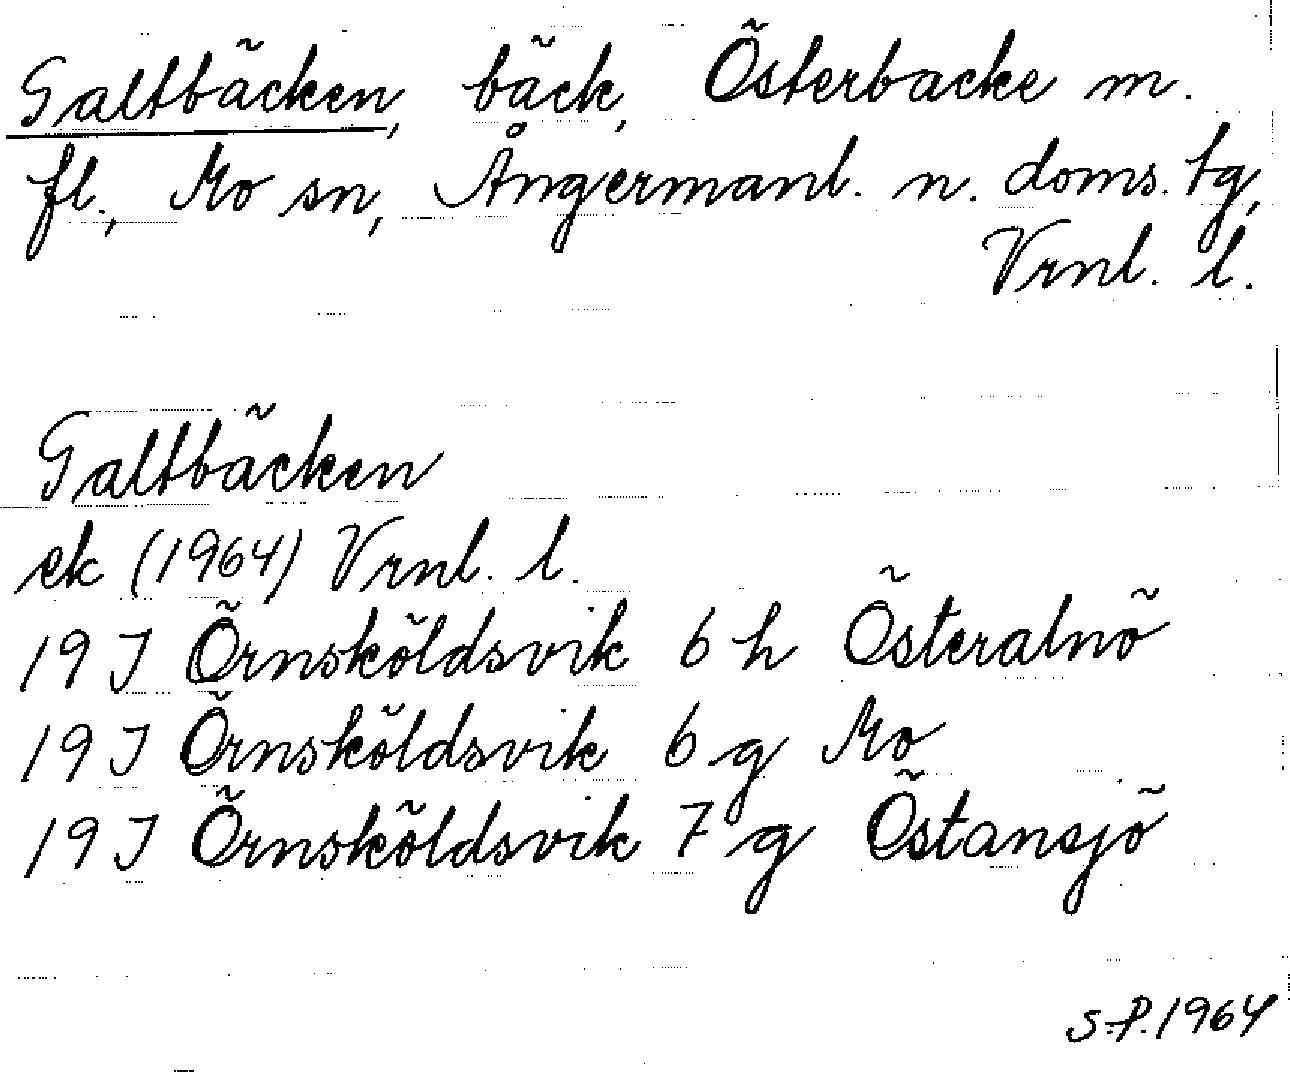 Galtbäcken, bäck, Österbacke m.
fl., Mo sn, Ångermanl. n. doms. tg,
Vrnl. l.
Galtbäcken
ek (1964) Vrnl. l.
19 J Örnsköldsvik 6 h Österalnö
19 J Örnsköldsvik 6 g Mo
19 J Örnsköldsvik 7 g Östansjö
S.P. 1964